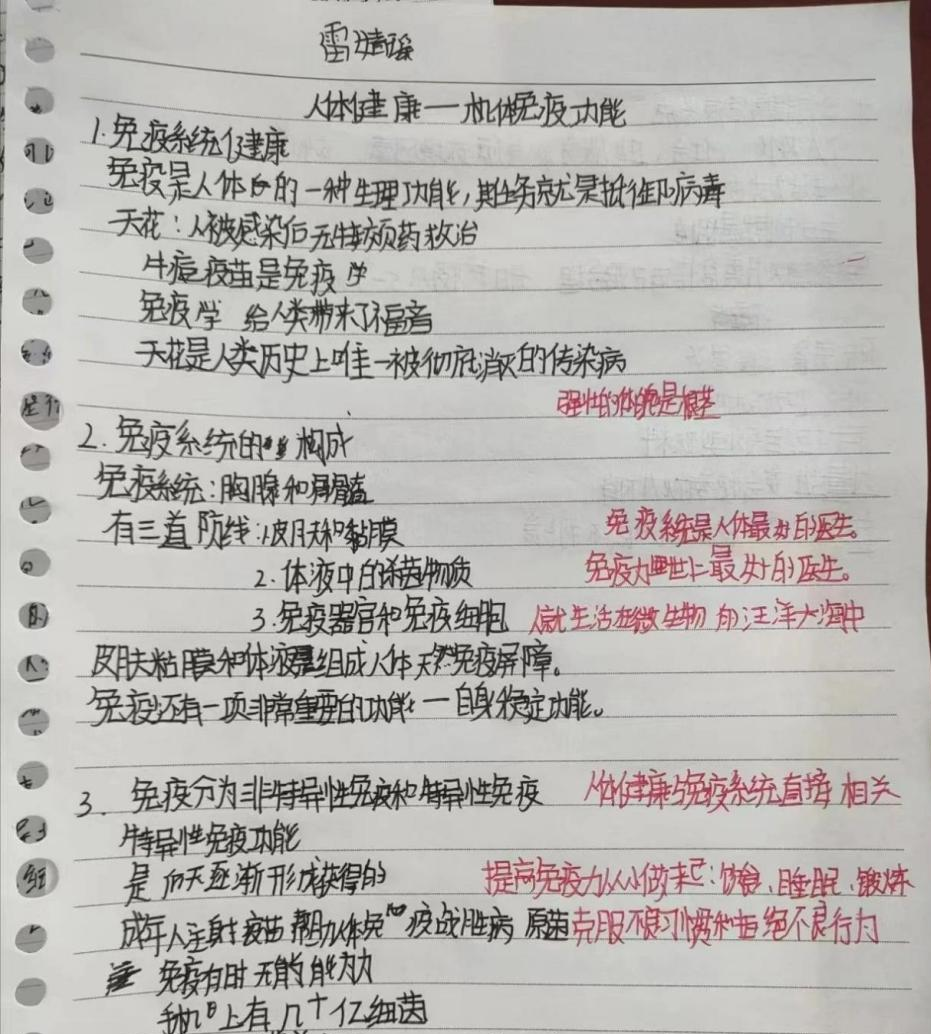 雷婧瑶
人体健康一机体免疫功能
1.免疫系统健康
免疫是人体内的一种生理功能,其任务就是抵御病毒
天花:人被感染后无特效药救治
牛痘疫苗是免疫学
免疫学 给人类带来了福音
天花是人类历史上唯一被彻底消灭的传染病
强性的体魄是根基
2.免疫系统的 构成
免疫系统:胸腺和骨髓
有三道防线:1.皮肤和黏膜 免疫系统是人体最好的医生。
2.体液中的杀菌物质 免疫力是世上最好的医生。
3.免疫器官和免疫细胞 人就生活在微生物的汪洋大海中
皮肤粘膜和体液是组成人体天然免疫屏障。
免疫还有一项非常重要的功能一自身稳定功能。
3.免疫分为非特异性免疫和特异性免疫 人体健康与免疫系统直接相关
特异性免疫功能
是后天逐渐形成获得的 提高免疫力从小做起:饮食、睡眠、锻炼
成年人注射疫苗帮助体免疫战胜病原菌 克服不良习惯和杜绝不良行为
免疫有时无能为力
手机上有几十亿细菌